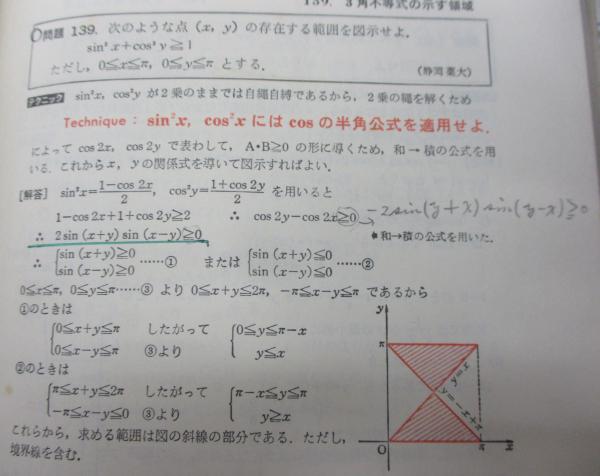 139. 3角不等式の示す領域
問題 139. 次のような点 (x, y) の存在する範囲を図示せよ.
sin²x+cos²y≧1
ただし, 0≦x≦π, 0≦y≦π とする.
(静岡薬大)
テクニック sin²x, cos²y が2乗のままでは自縄自縛であるから, 2乗の縄を解くため
Technique : sin²x, cos²x には cos の半角公式を適用せよ.
によって cos 2x, cos 2y で表わして, A・B≧0 の形に導くため, 和→積の公式を用
いる. これから x, y の関係式を導いて図示すればよい.
[解答] sin²x=(1−cos 2x)/2, cos²y=(1+cos 2y)/2 を用いると
1−cos 2x+1+cos 2y≧2 ∴ cos 2y−cos 2x≧0 → −2sin(y+x)sin(y−x)≧0
∴ 2 sin (x+y) sin (x−y)≧0 ●和→積の公式を用いた.
∴ {sin (x+y)≧0 sin (x−y)≧0 ……① または {sin (x+y)≦0 sin (x−y)≦0 ……②
0≦x≦π, 0≦y≦π……③ より 0≦x+y≦2π, −π≦x−y≦π であるから
①のときは
{0≦x+y≦π したがって {0≦y≦π−x
0≦x−y≦π ③より y≦x
②のときは
{π≦x+y≦2π したがって {π−x≦y≦π
−π≦x−y≦0 ③より y≧x
これらから, 求める範囲は図の斜線の部分である. ただし,
境界線を含む.
y
π
y=x
y=−x+π
O
π
x